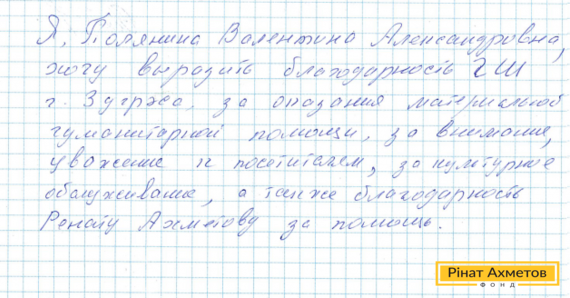 Я, Полянина Валентина Александровна,
хочу выразить благодарность ГШ
г. Зугрэса, за оказания материальной
гуманитарной помощи, за внимание,
уважение к посетителем, за культурное
обслуживание, а также благодарность
Ренату Ахметову за помощь.
Рінат Ахметов
ФОНД